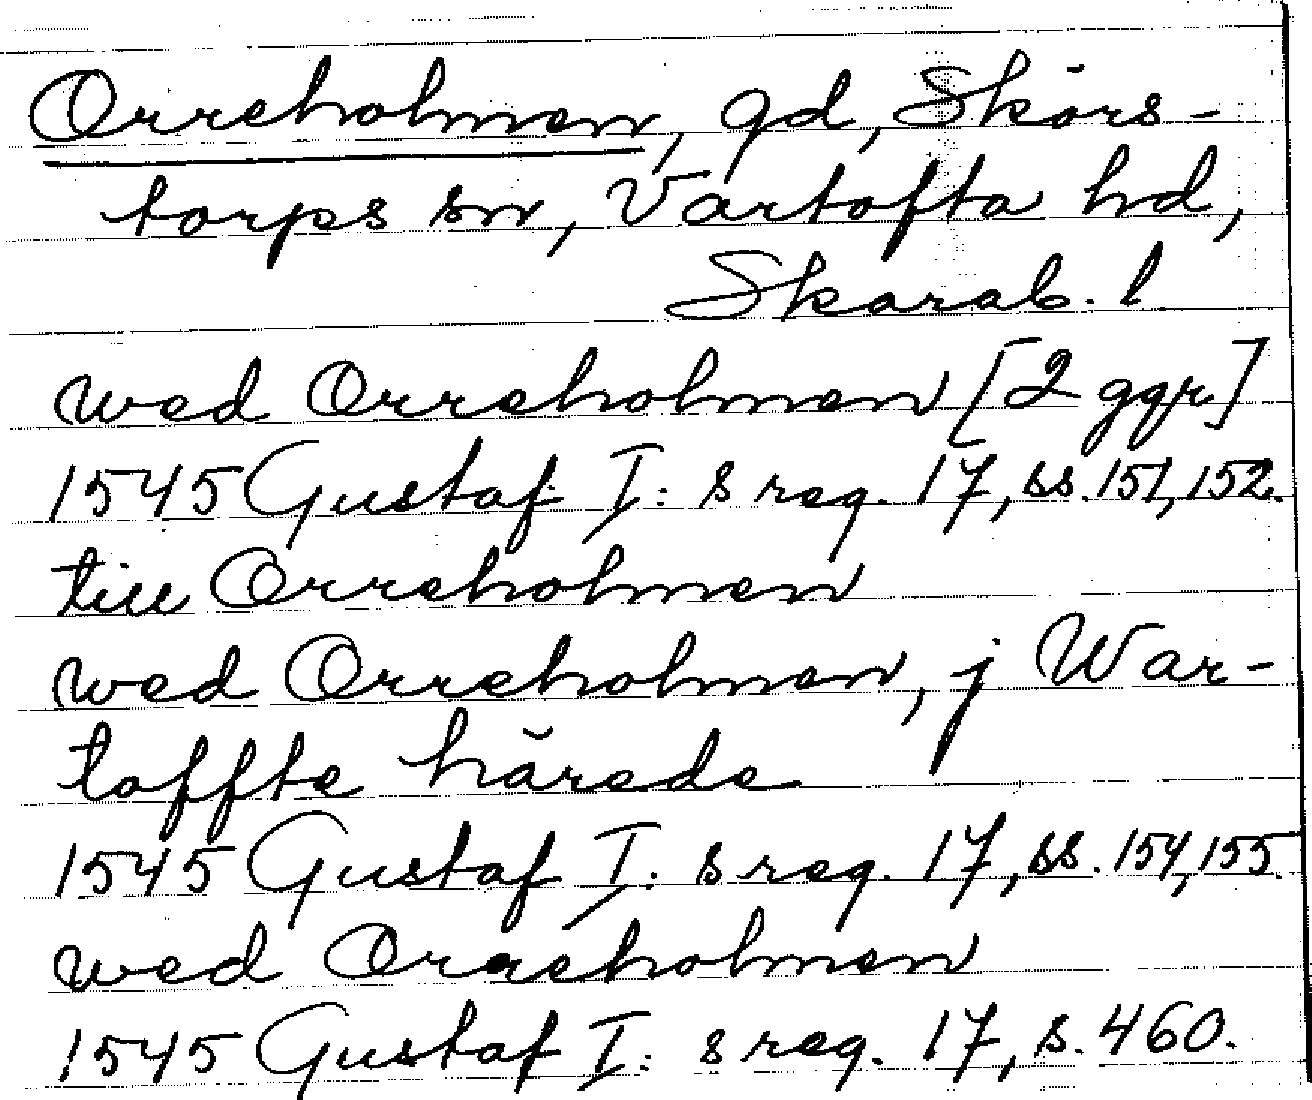 Orreholmen, gd, Skörs-
torps sn, Vartofta hd,
Skarab. l
wed Orreholmen [2 ggr.]
1545 Gustaf I: s reg. 17, ss. 151, 152.
till Orreholmen
wed Orreholmen, j War-
toffte hårede
1545 Gustaf I: s reg. 17, ss. 154, 155.
wed Orreholmen
1545 Gustaf I: s reg. 17, s. 460.